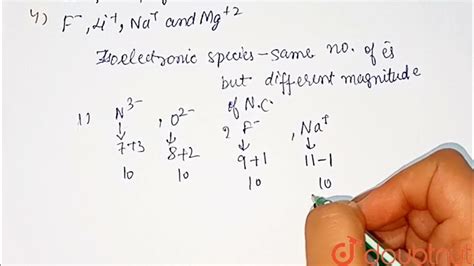 4) F⁻, Li⁺, Na⁺ and Mg⁺²
Isoelectronic species – same no. of ēs
but different magnitude
of N.C.
1) N³⁻, O²⁻, F⁻, Na⁺
↓ ↓ ↓ ↓
7+3 8+2 9+1 11-1
10 10 10 10
doubtnut